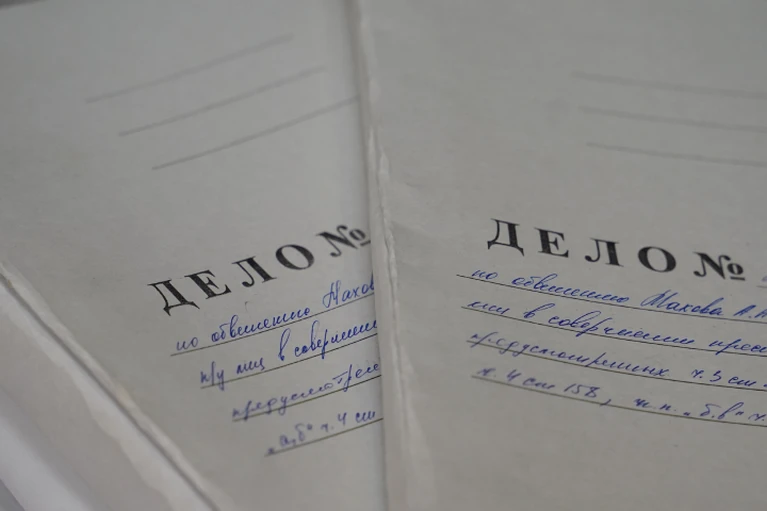 ДЕЛО №
по обвинению Махов
п/у лиц в совершении
предусмотрен
„а,б" ч. 4 ст
ДЕЛО №
по обвинению Махова А.А
лиц в совершении прес
предусмотренных ч. 3 ст.
ч. 4 ст 158, п.п. „б,в" ч.